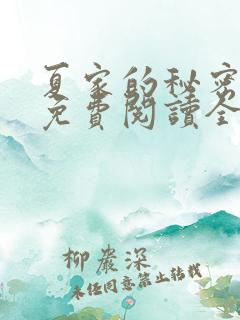 夏家的秘密
免費閱讀全
柳巖深
未经同意禁止转载